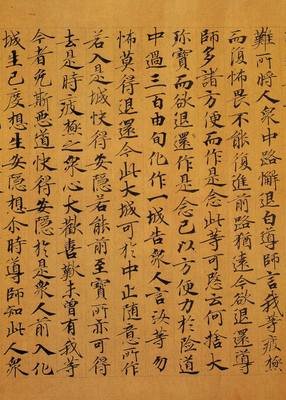 難所將人衆中路懈退白導師言我等疲極
而復怖畏不能復進前路猶遠今欲退還導
師多諸方便而作是念此等可愍云何捨大
珎寶而欲退還作是念已以方便力於險道
中過三百由旬化作一城告衆人言汝等勿
怖莫得退還今此大城可於中止随意所作
若入是城快得安隱若能前至寶所亦可得
去是時疲極之衆心大歡喜歎未曾有我等
今者免斯惡道快得安隱於是衆人前入化
城生已度想生安隱想尒時導師知此人衆